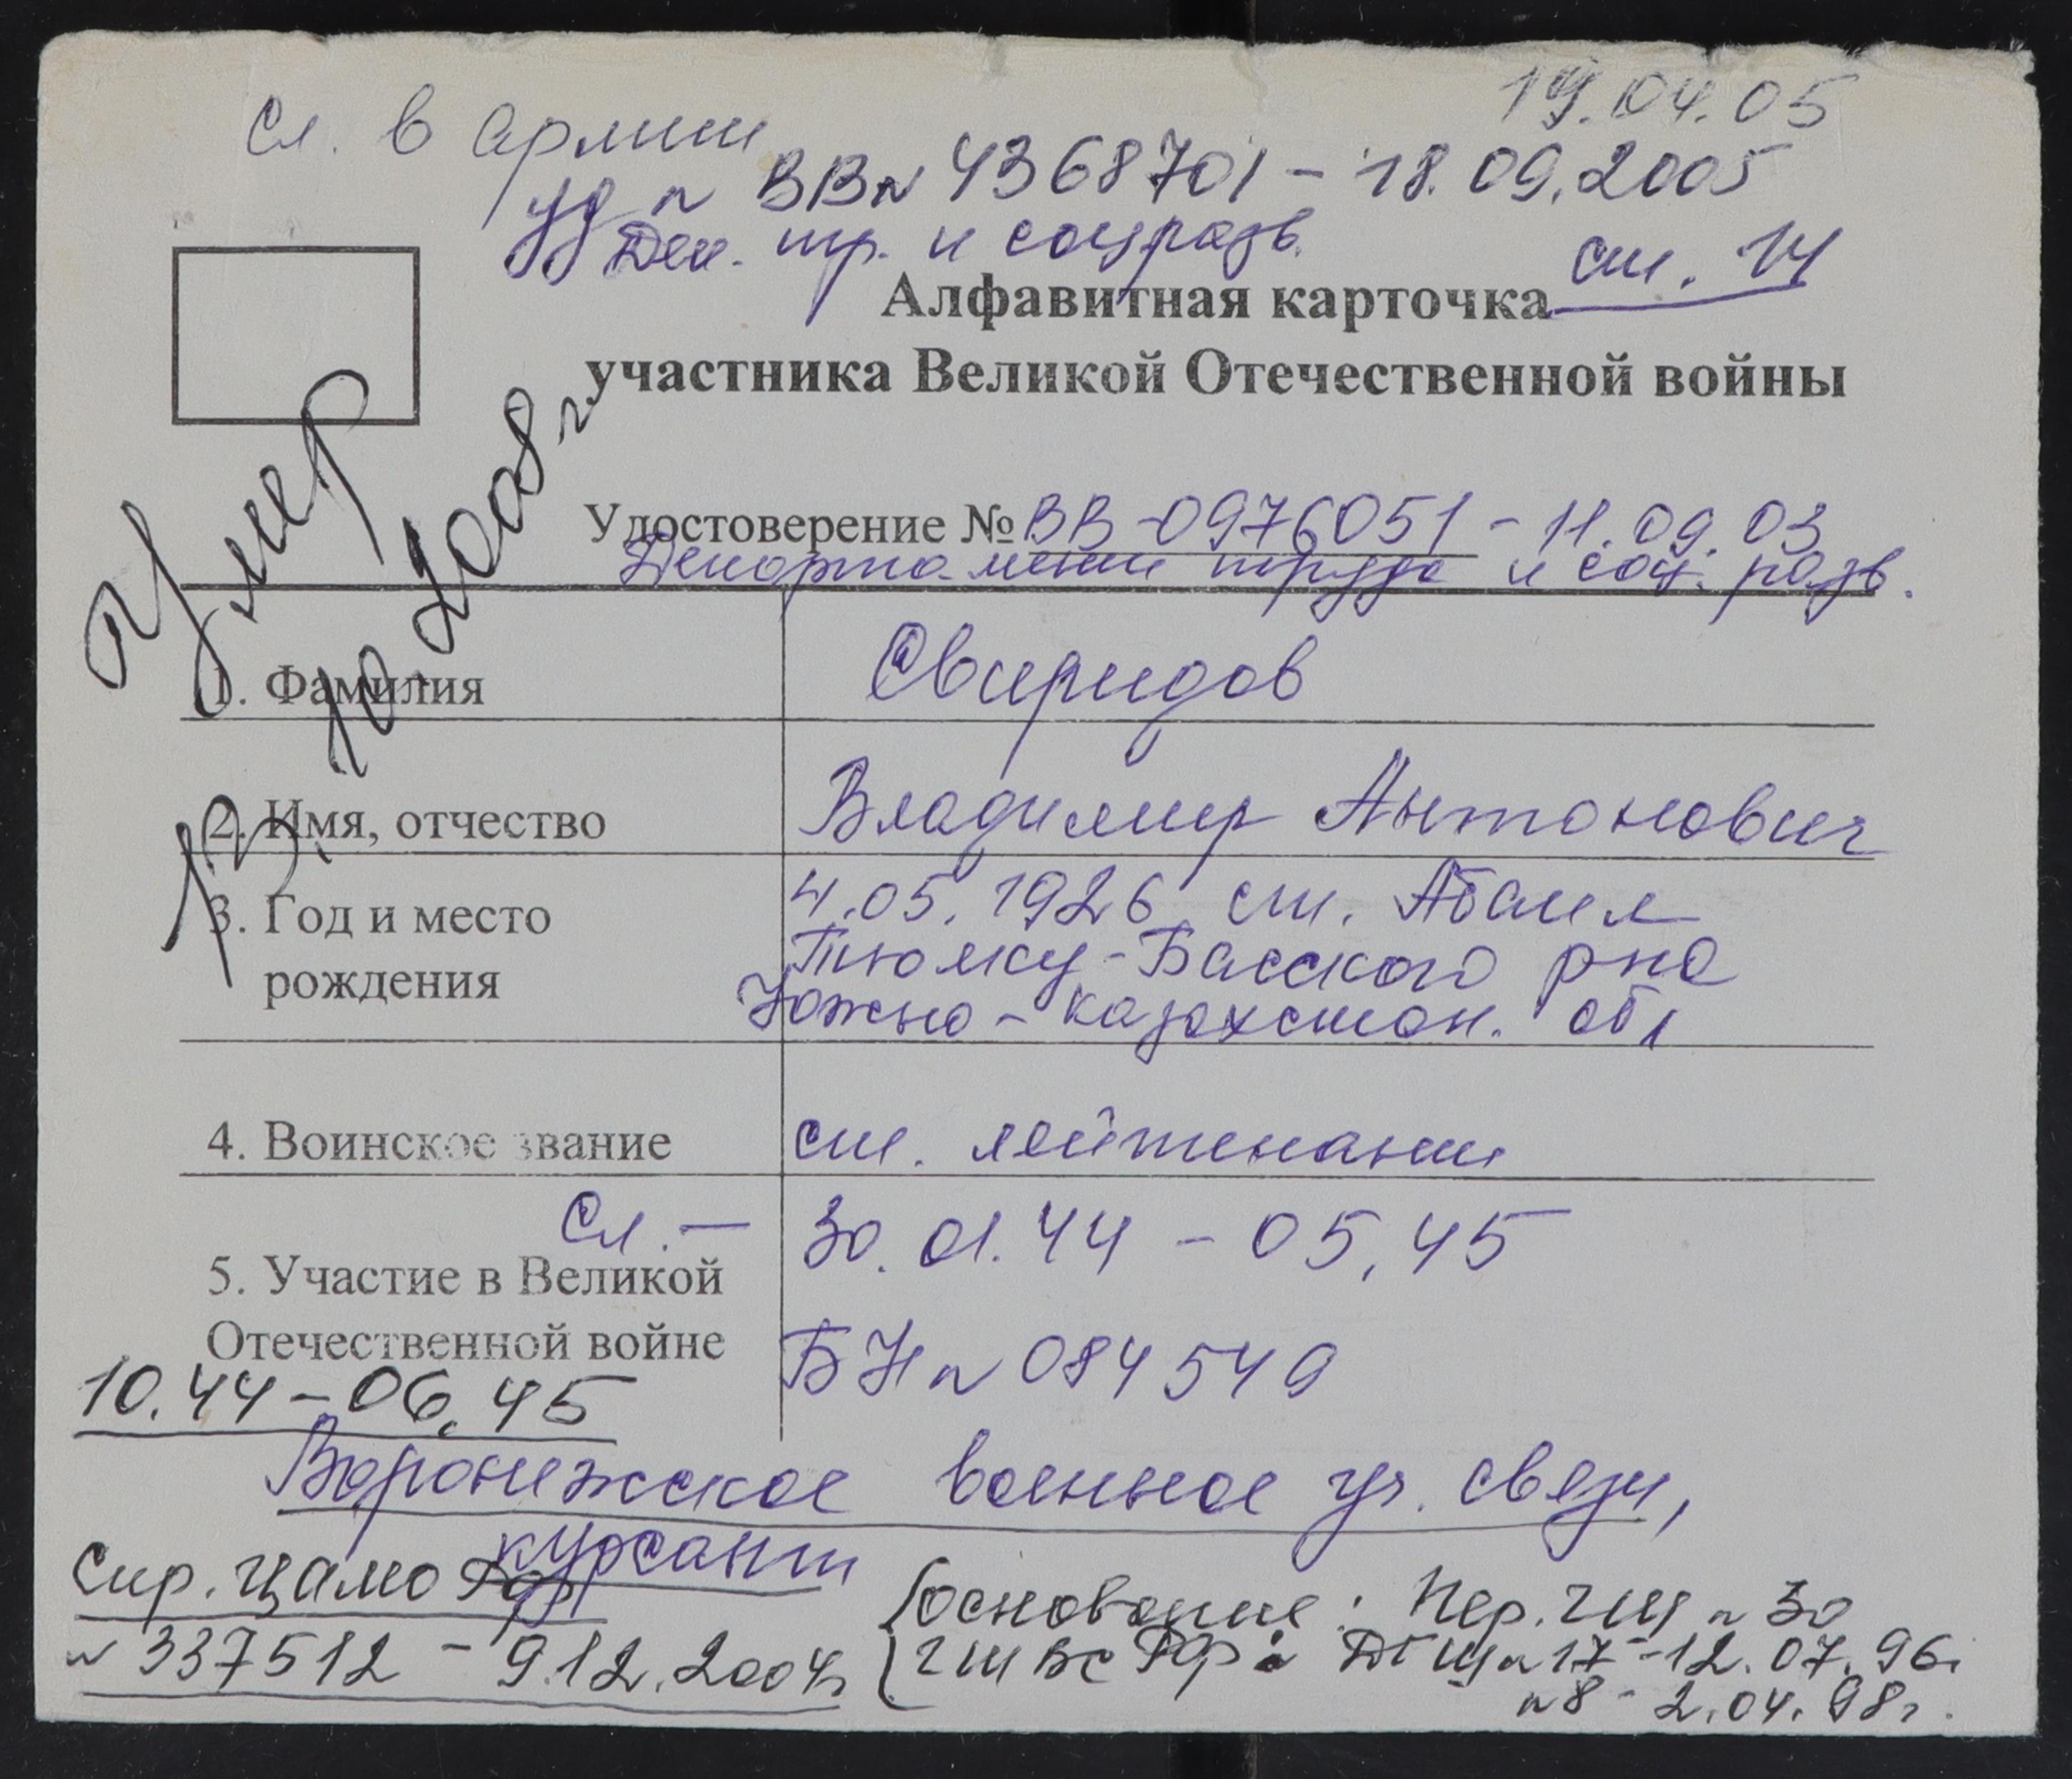 19.04.05
Сл. в армии
уд N ВВ N 4368701 – 18.09.2005
Деп. тр. и соцразв.
ст. 14
Алфавитная карточка
участника Великой Отечественной войны
Умер
13.10.2008 г.
Удостоверение № ВВ-0976051 – 11.09.03
Департамент труда и соц. разв.
1. Фамилия Свиридов
2. Имя, отчество Владимир Антонович
3. Год и место 4.05.1926, ст. Абаил
рождения Тюльку-Басского рна
Южно-казахстан. обл
4. Воинское звание ст. лейтенант
Сл. – 30.01.44 – 05.45
5. Участие в Великой
Отечественной войне БН N 084549
10.44 – 06.45
Воронежское военное уч. связи,
курсант
Спр. ЦАМО РФ
N 337512 – 9.12.2004г
основание: Пер. ГШ N 30
ГШ ВС РФ: ДГШ N 17 – 12.07.96.
N 8 – 2.04.98г.